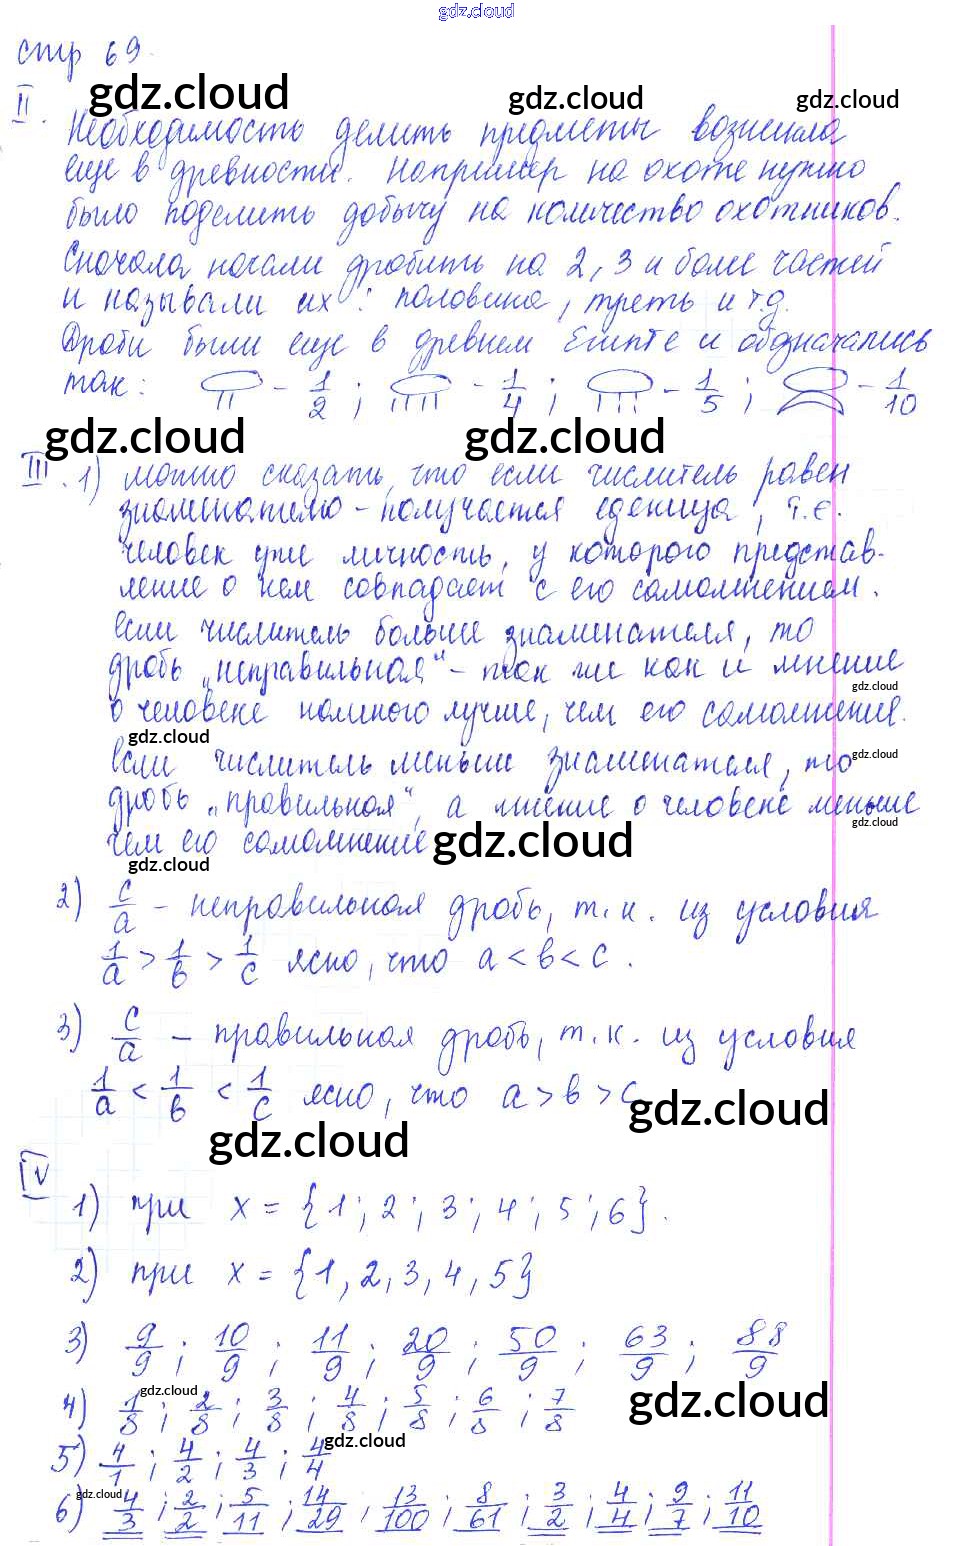 gdz.cloud
стр 69.
gdz.cloud gdz.cloud gdz.cloud
II. Необходимость делить предметы возникла
еще в древности. Например на охоте нужно
было поделить добычу на количество охотников.
Сначала начали дробить на 2, 3 и более частей
и называли их: половина, треть и т.д.
Дроби были еще в древнем Египте и обозначались
так: - 1/2 ; - 1/4 ; - 1/5 ; - 1/10
gdz.cloud gdz.cloud
III. 1) можно сказать, что если числитель равен
знаменателю - получается еденица, т.е.
человек уже личность, у которого представ-
ление о нем совпадает с его самомнением.
Если числитель больше знаменателя, то
дробь „неправильная“ - так же как и мнение
gdz.cloud
о человеке намного лучше, чем его самомнение.
gdz.cloud
Если числитель меньше знаменателя, то
gdz.cloud
дробь „правильная“, а мнение о человеке меньше
gdz.cloud
чем его самомнение
gdz.cloud
gdz.cloud
2) c/a - неправильная дробь, т.к. из условия
1/a > 1/b > 1/c ясно, что a < b < c.
3) c/a - правильная дробь, т.к. из условия
1/a < 1/b < 1/c ясно, что a > b > c
gdz.cloud
gdz.cloud
IV
1) при x = {1; 2; 3; 4; 5; 6}.
2) при x = {1, 2, 3, 4, 5}
3) 9/9 ; 10/9 ; 11/9 ; 20/9 ; 50/9 ; 63/9 ; 88/9
gdz.cloud gdz.cloud
4) 1/8 ; 2/8 ; 3/8 ; 4/8 ; 5/8 ; 6/8 ; 7/8
gdz.cloud
5) 4/1 ; 4/2 ; 4/3 ; 4/4
gdz.cloud
6) 4/3 ; 2/2 ; 5/11 ; 14/29 ; 13/100 ; 8/61 ; 3/2 ; 4/4 ; 9/7 ; 11/10